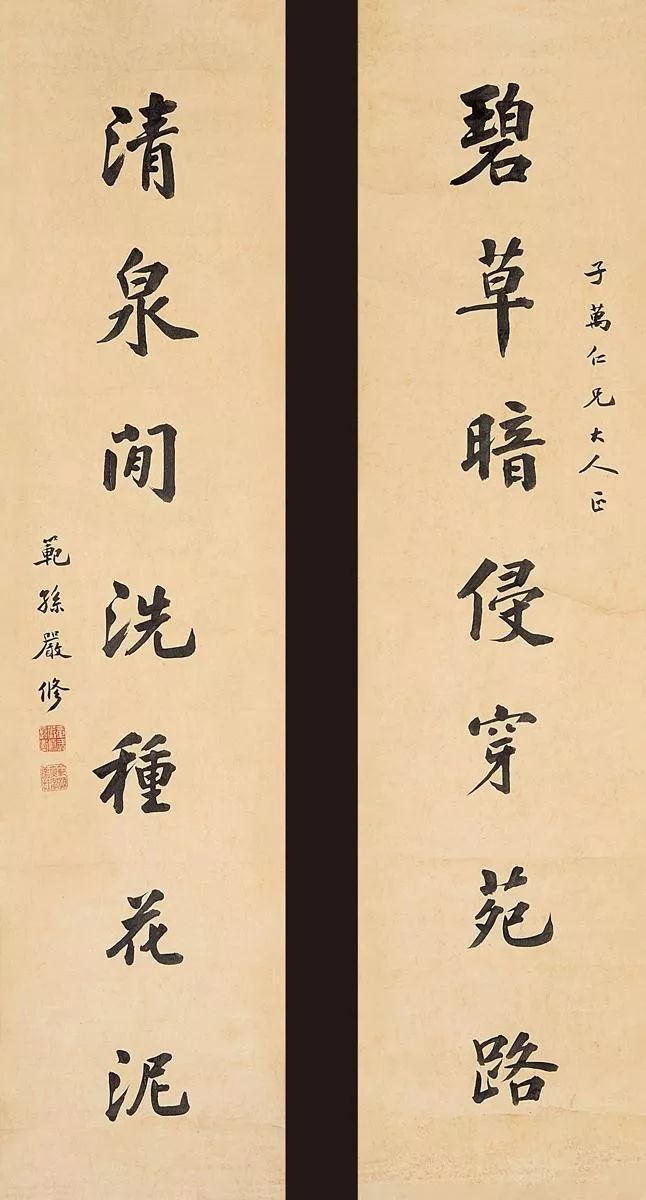 子萬仁兄大人正
碧草暗侵穿苑路
清泉閒洗種花泥
範孫嚴修